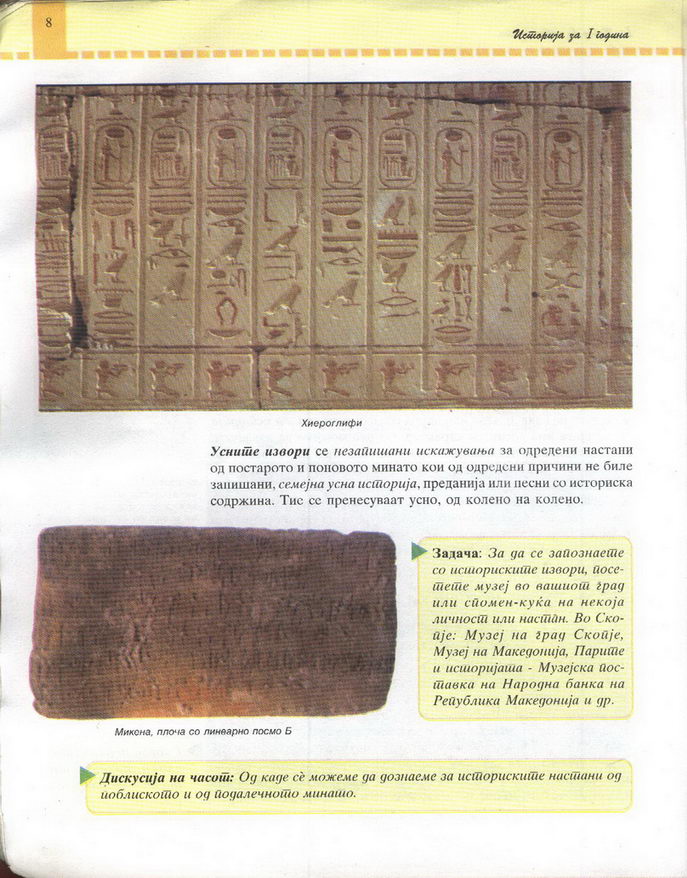 8
Историја за I година
Хиероглифи
Усните извори се незапишани искажувања за одредени настани
од постарото и поновото минато кои од одредени причини не биле
запишани, семејна усна историја, преданија или песни со историска
содржина. Тие се пренесуваат усно, од колено на колено.
Задача: За да се запознаете
со историските извори, посе-
тете музеј во вашиот град
или спомен-куќа на некоја
личност или настан. Во Ско-
пје: Музеј на град Скопје,
Музеј на Македонија, Парите
и историјата - Музејска пос-
тавка на Народна банка на
Република Македонија и др.
Микена, плоча со линеарно посмо Б
Дискусија на часот: Од каде сè можеме да дознаеме за историските настани од
поблиското и од подалечното минато.